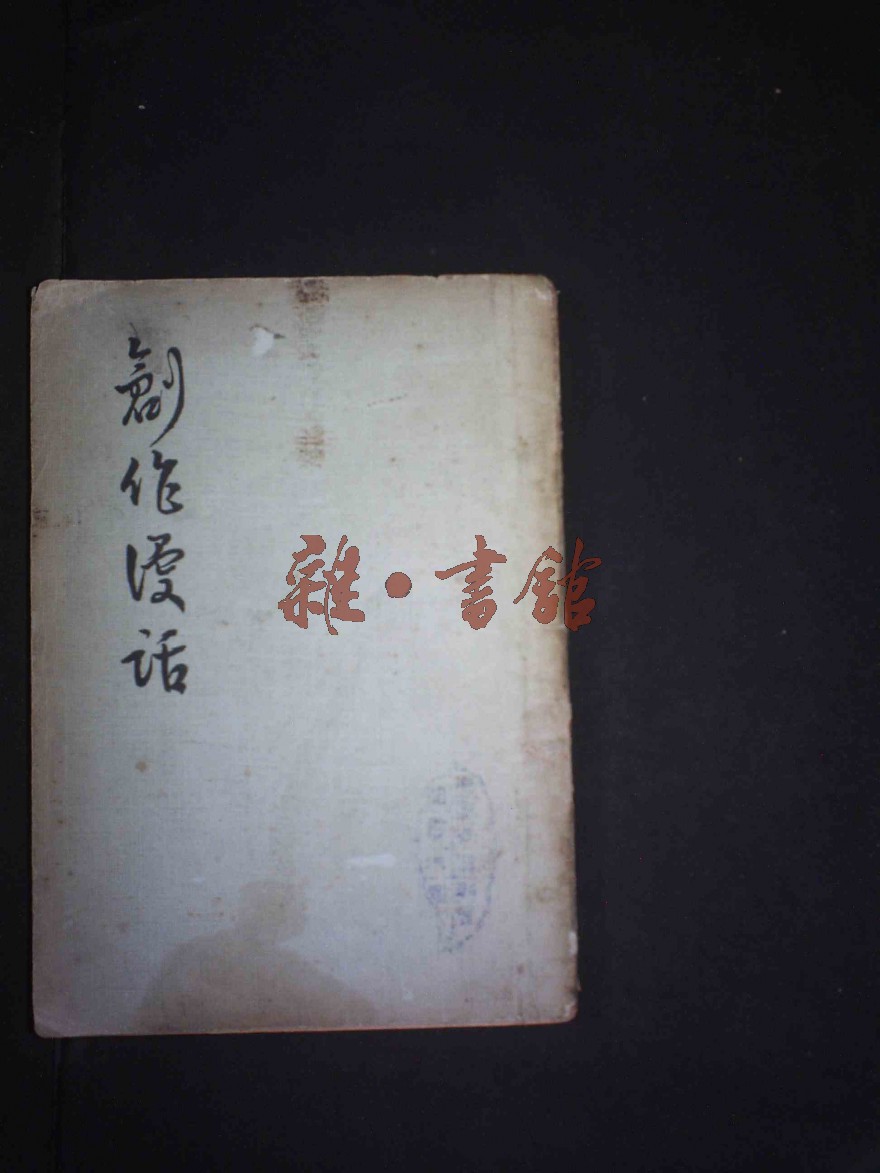 創作漫話
雜·書館